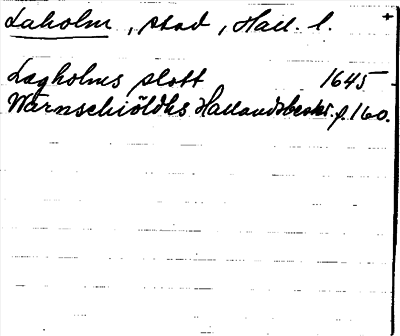 Laholm, stad, Hall. l. +
Lagholms slott 1645
Warnschiöldhs Hallandsbeskr. f. 160.